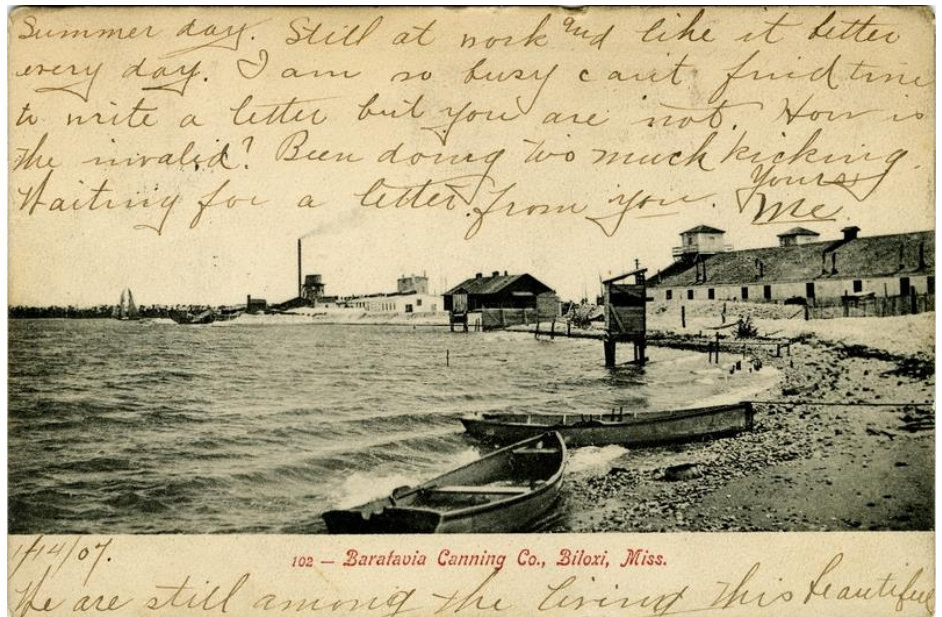 Summer day. Still at work and like it better
every day. I am so busy cant find time
to write a letter but you are not. How is
the invalid? Been doing too much kicking.
Waiting for a letter from you. Yours,
Me.
1/14/07.
102 — Baratavia Canning Co., Biloxi, Miss.
We are still among the living this beautiful